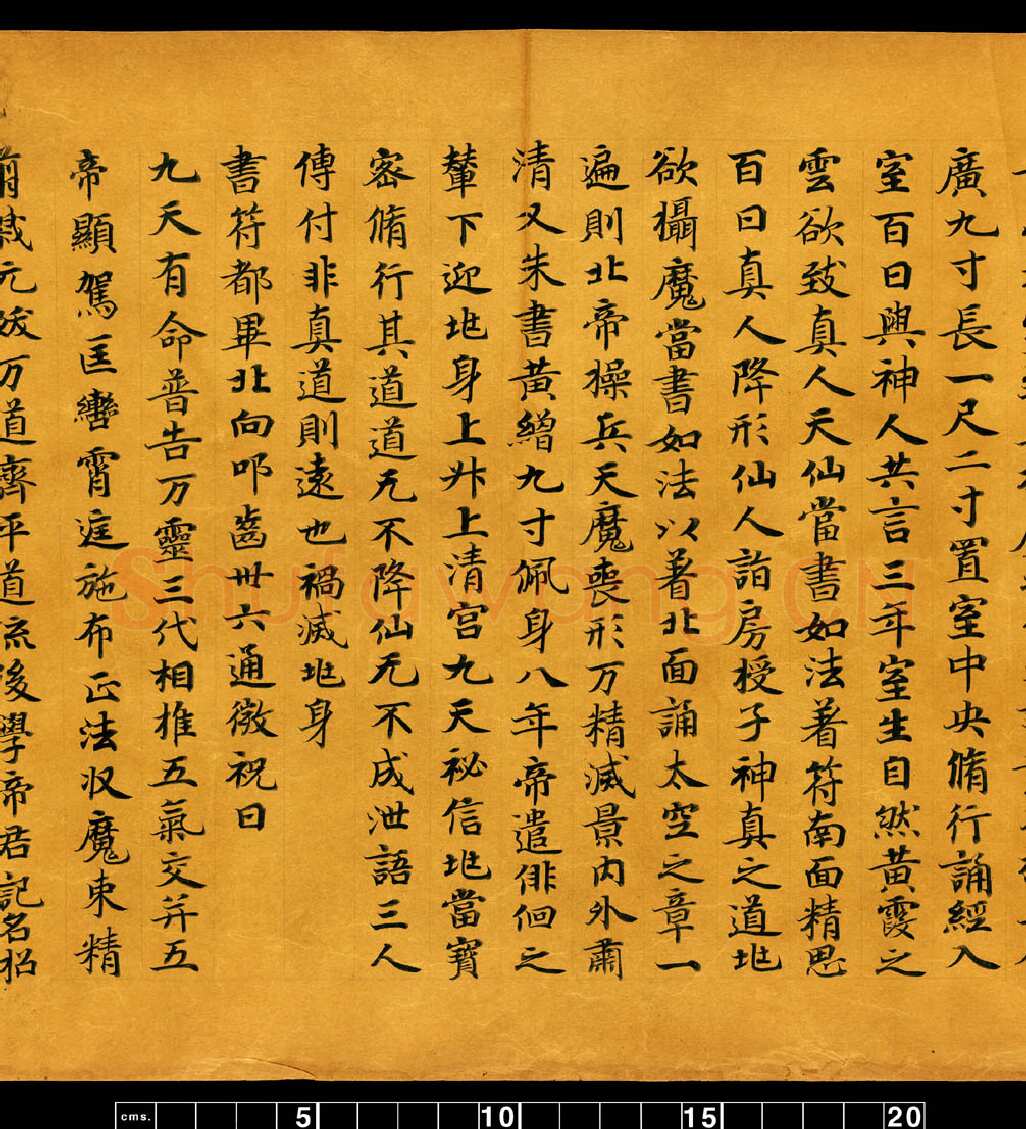 廣九寸長一尺二寸置室中央脩行誦經入
室百日與神人共言三年室生自然黃霞之
雲欲致真人天仙當書如法著符南面精思
百日真人降形仙人詣房授子神真之道地
欲攝魔當書如法以著北面誦太空之章一
遍則北帝操兵天魔喪形万精滅景内外肅
清又朱書黃繒九寸佩身八年帝遣俳佪之
輦下迎地身上升上清宫九天祕信地當寶
密脩行其道道无不降仙无不成泄語三人
傳付非真道則遠也禍滅地身
書符都畢北向叩齒卅六通微祝曰
九天有命普告万靈三代相推五氣交并五
帝顯駕匡轡霄庭施布正法収魔束精
万道齊平道流後學帝君記名招
Shufawang.CN
cms. 5 10 15 20